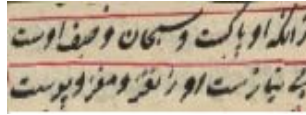 زانکه او پاکست و سبحان وصف اوست
بی نیازست او ز نغز و مغز و پوست